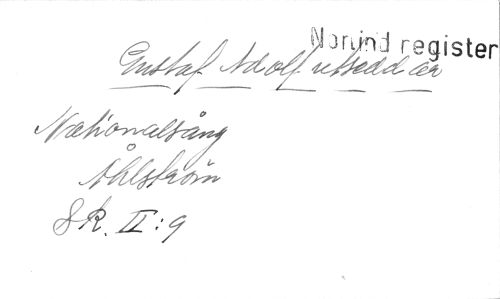 Norlind register
Gustaf Adolf utsedd är
Nationalsång
Åhlström
SR. II:9